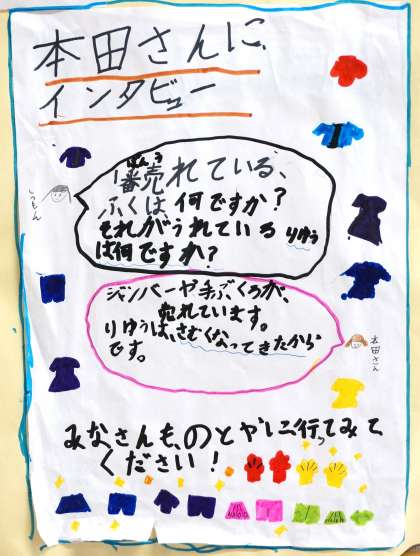 本田さんに
インタビュー
しつもん
1番売れている、
ばん う
ふくは何ですか?
それがうれている りゆう
は何ですか?
ジャンパーや手ぶくろが、
売れています。
りゆうは、さむくなってきたから
です。
本田さん
みなさんも、のとやに行ってみて
ください!